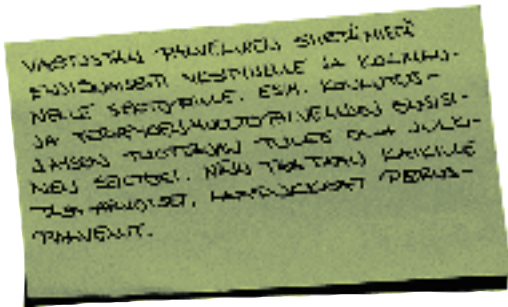 VASTUSTAN PALVELUJEN SIIRTÄMISTÄ
ENSISIJAISESTI JA KOLMAN-
NELLE SEKTORILLE. ESIM. KOULUTUS-
JA TERVEYDENHUOLTOPALVELUJEN ENSISI-
JAISEN TUOTTAJAN TULEE OLLA JULKI-
NEN SEKTORI. NÄIN TAATAAN KAIKILLE
TASA-ARVOISET, LAADUKKAAT PERUS-
PALVELUT.